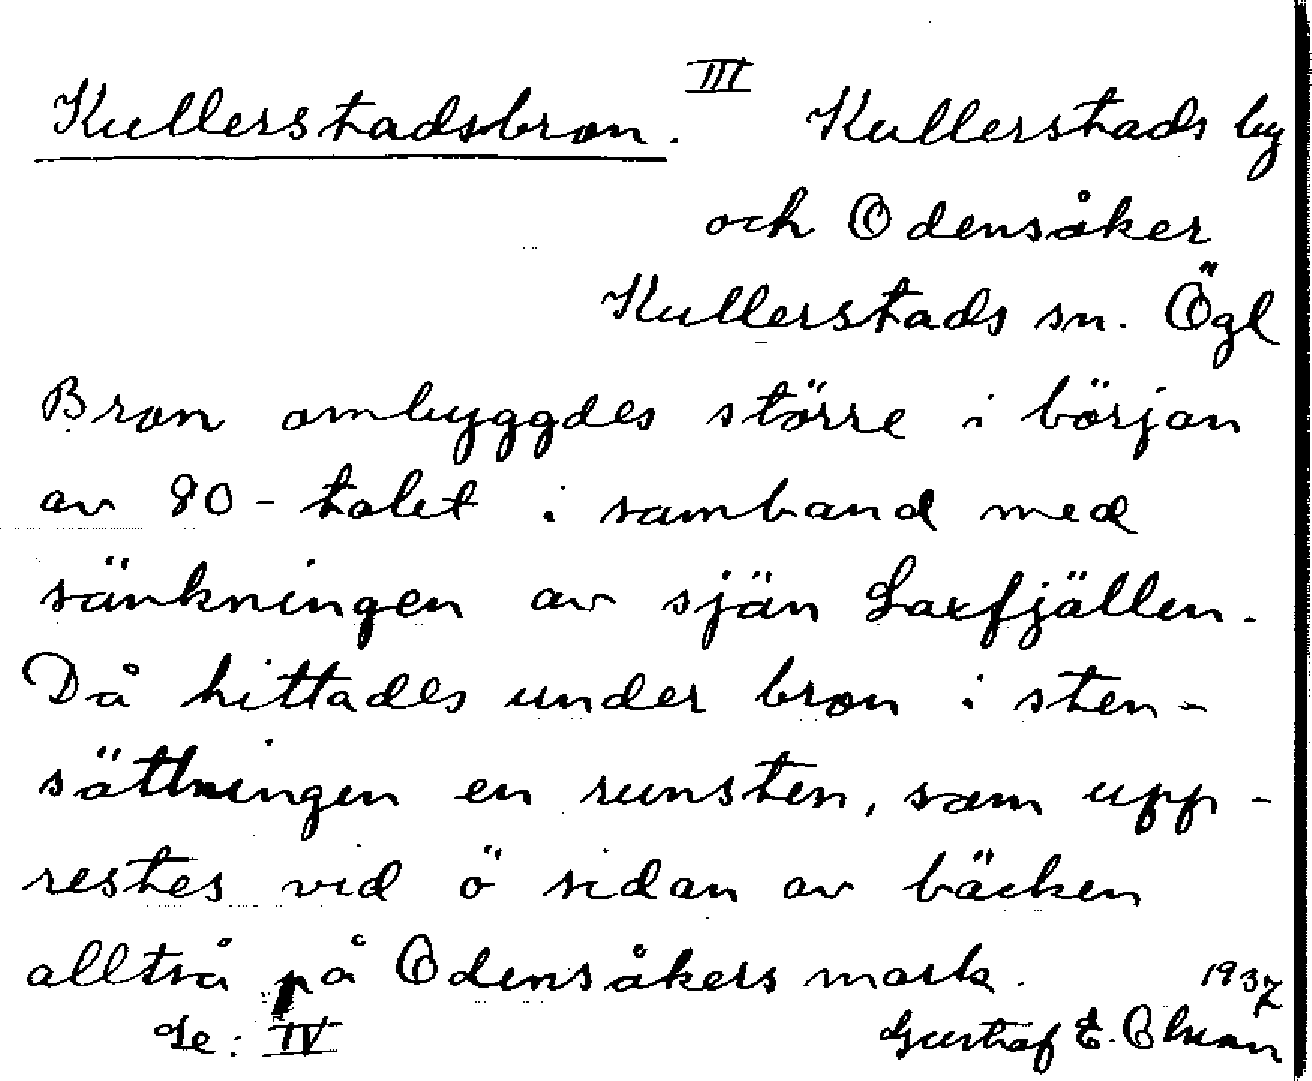 III
Kullerstadsbron. Kullerstads by
och Odensåker
Kullerstads sn. Ögl
Bron ombyggdes större i början
av 80-talet i samband med
sänkningen av sjön Laxfjällen.
Då hittades under bron i sten-
sättningen en runsten, som upp-
restes vid ö sidan av bäcken
alltså på Odensåkers mark. 1937
Se: IV Gustaf E.